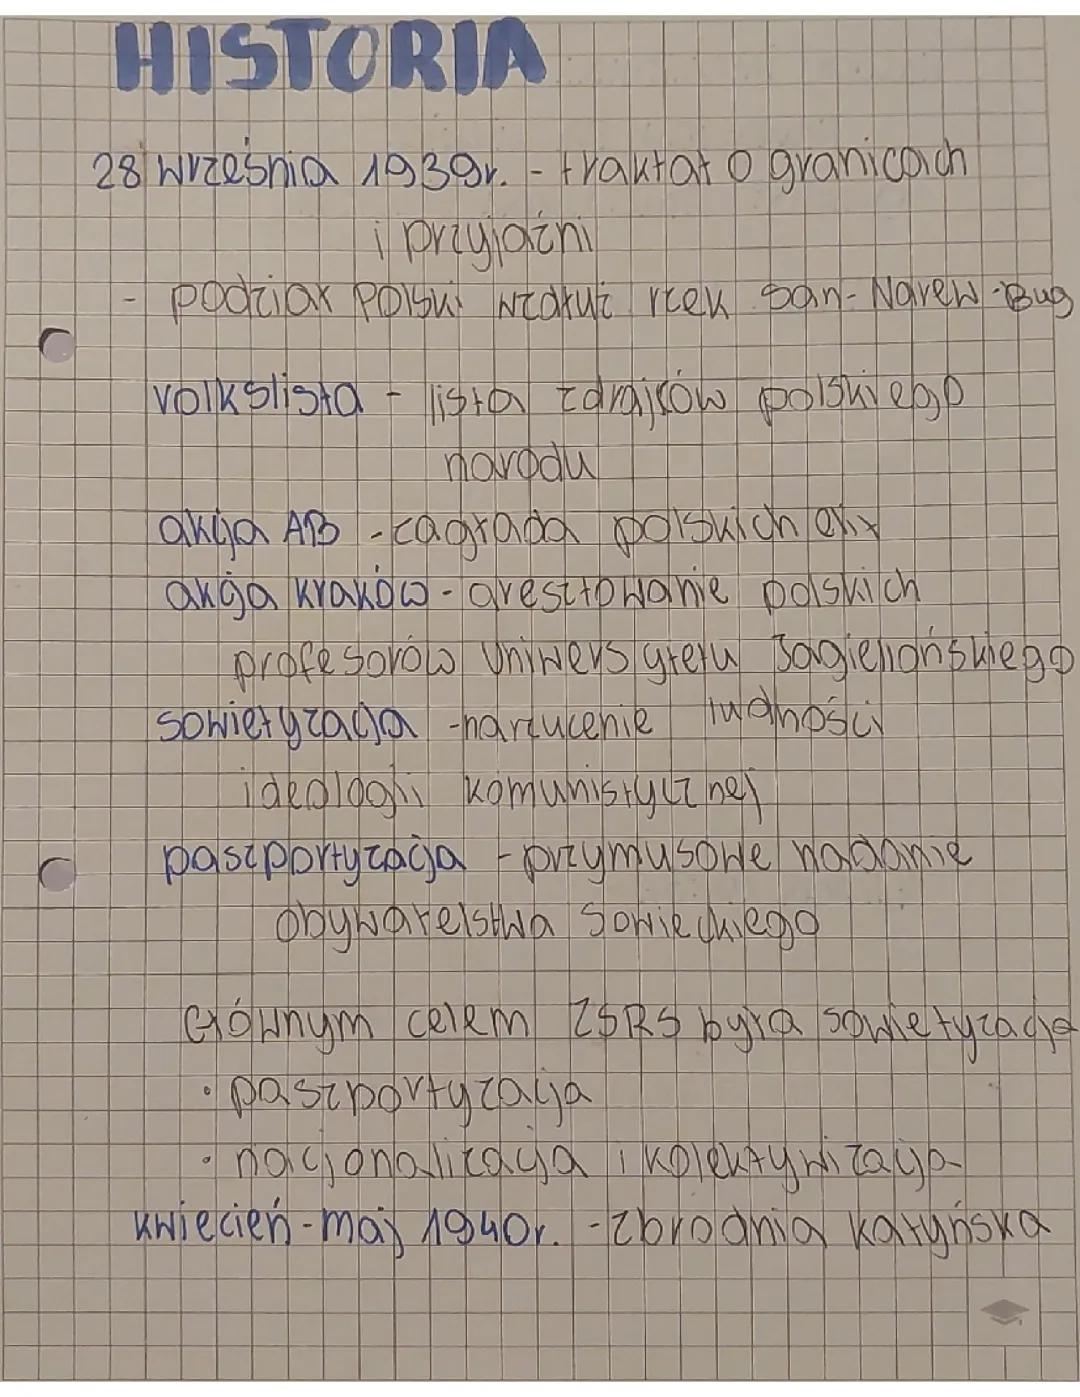 HISTORIA
28 września 1939r. - traktat o granicach
i przyjaźni
- podział Polski wzdłuż rzek San-Narew-Bug
volkslista - lista zdrajców polskiego
narodu
akcja AB - zagłada polskich elit
akcja Kraków - aresztowanie polskich
profesorów Uniwersytetu Jagielońskiego
sowietyzacja - narzucenie ludności
ideologii komunistycznej
paszportyzacja - przymusowe nadanie
obywatelstwa sowieckiego
Głównym celem ZSRS była sowietyzacja
• paszportyzacja
• nacjonalizacja i kolektywizacja
kwiecień - maj 1940r. - zbrodnia katyńska